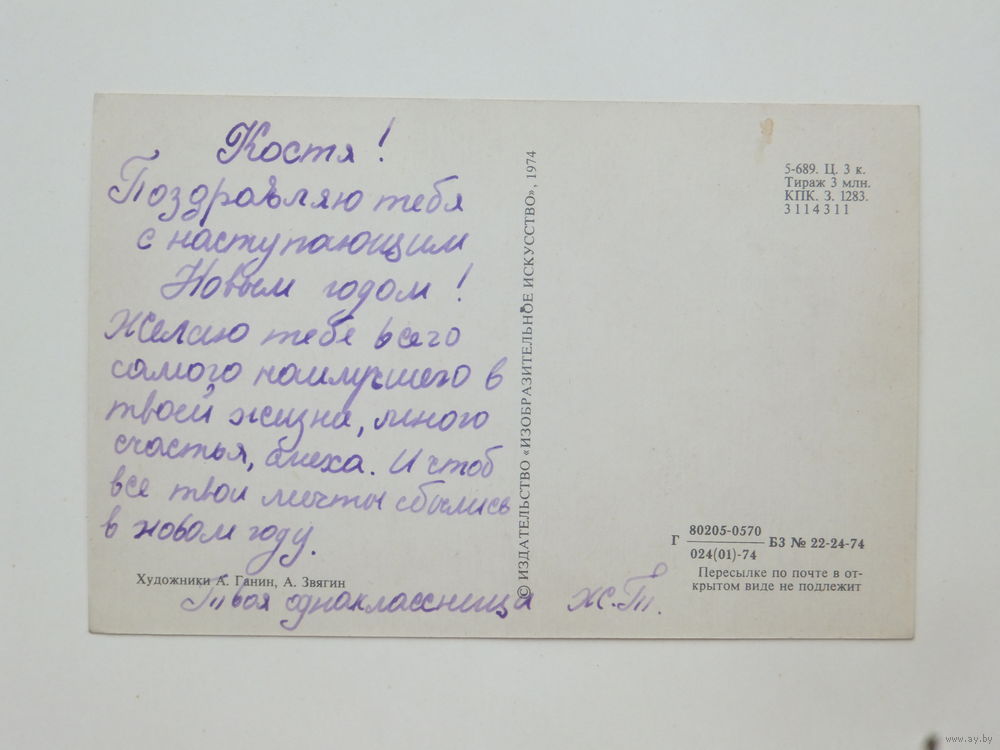 Костя!
Поздравляю тебя
с наступающим
Новым годом!
Желаю тебе всего
самого наилучшего в
твоей жизни, много
счастья, смеха. И чтоб
все твои мечты сбылись
в новом году.
Художники А. Ганин, А. Звягин
Твоя одноклассница Ж.Т.
© ИЗДАТЕЛЬСТВО «ИЗОБРАЗИТЕЛЬНОЕ ИСКУССТВО», 1974
5-689. Ц. 3 к.
Тираж 3 млн.
КПК. З. 1283.
3114311
Г 80205-0570 БЗ № 22-24-74
024(01)-74
Пересылке по почте в от-
крытом виде не подлежит
www.ay.by